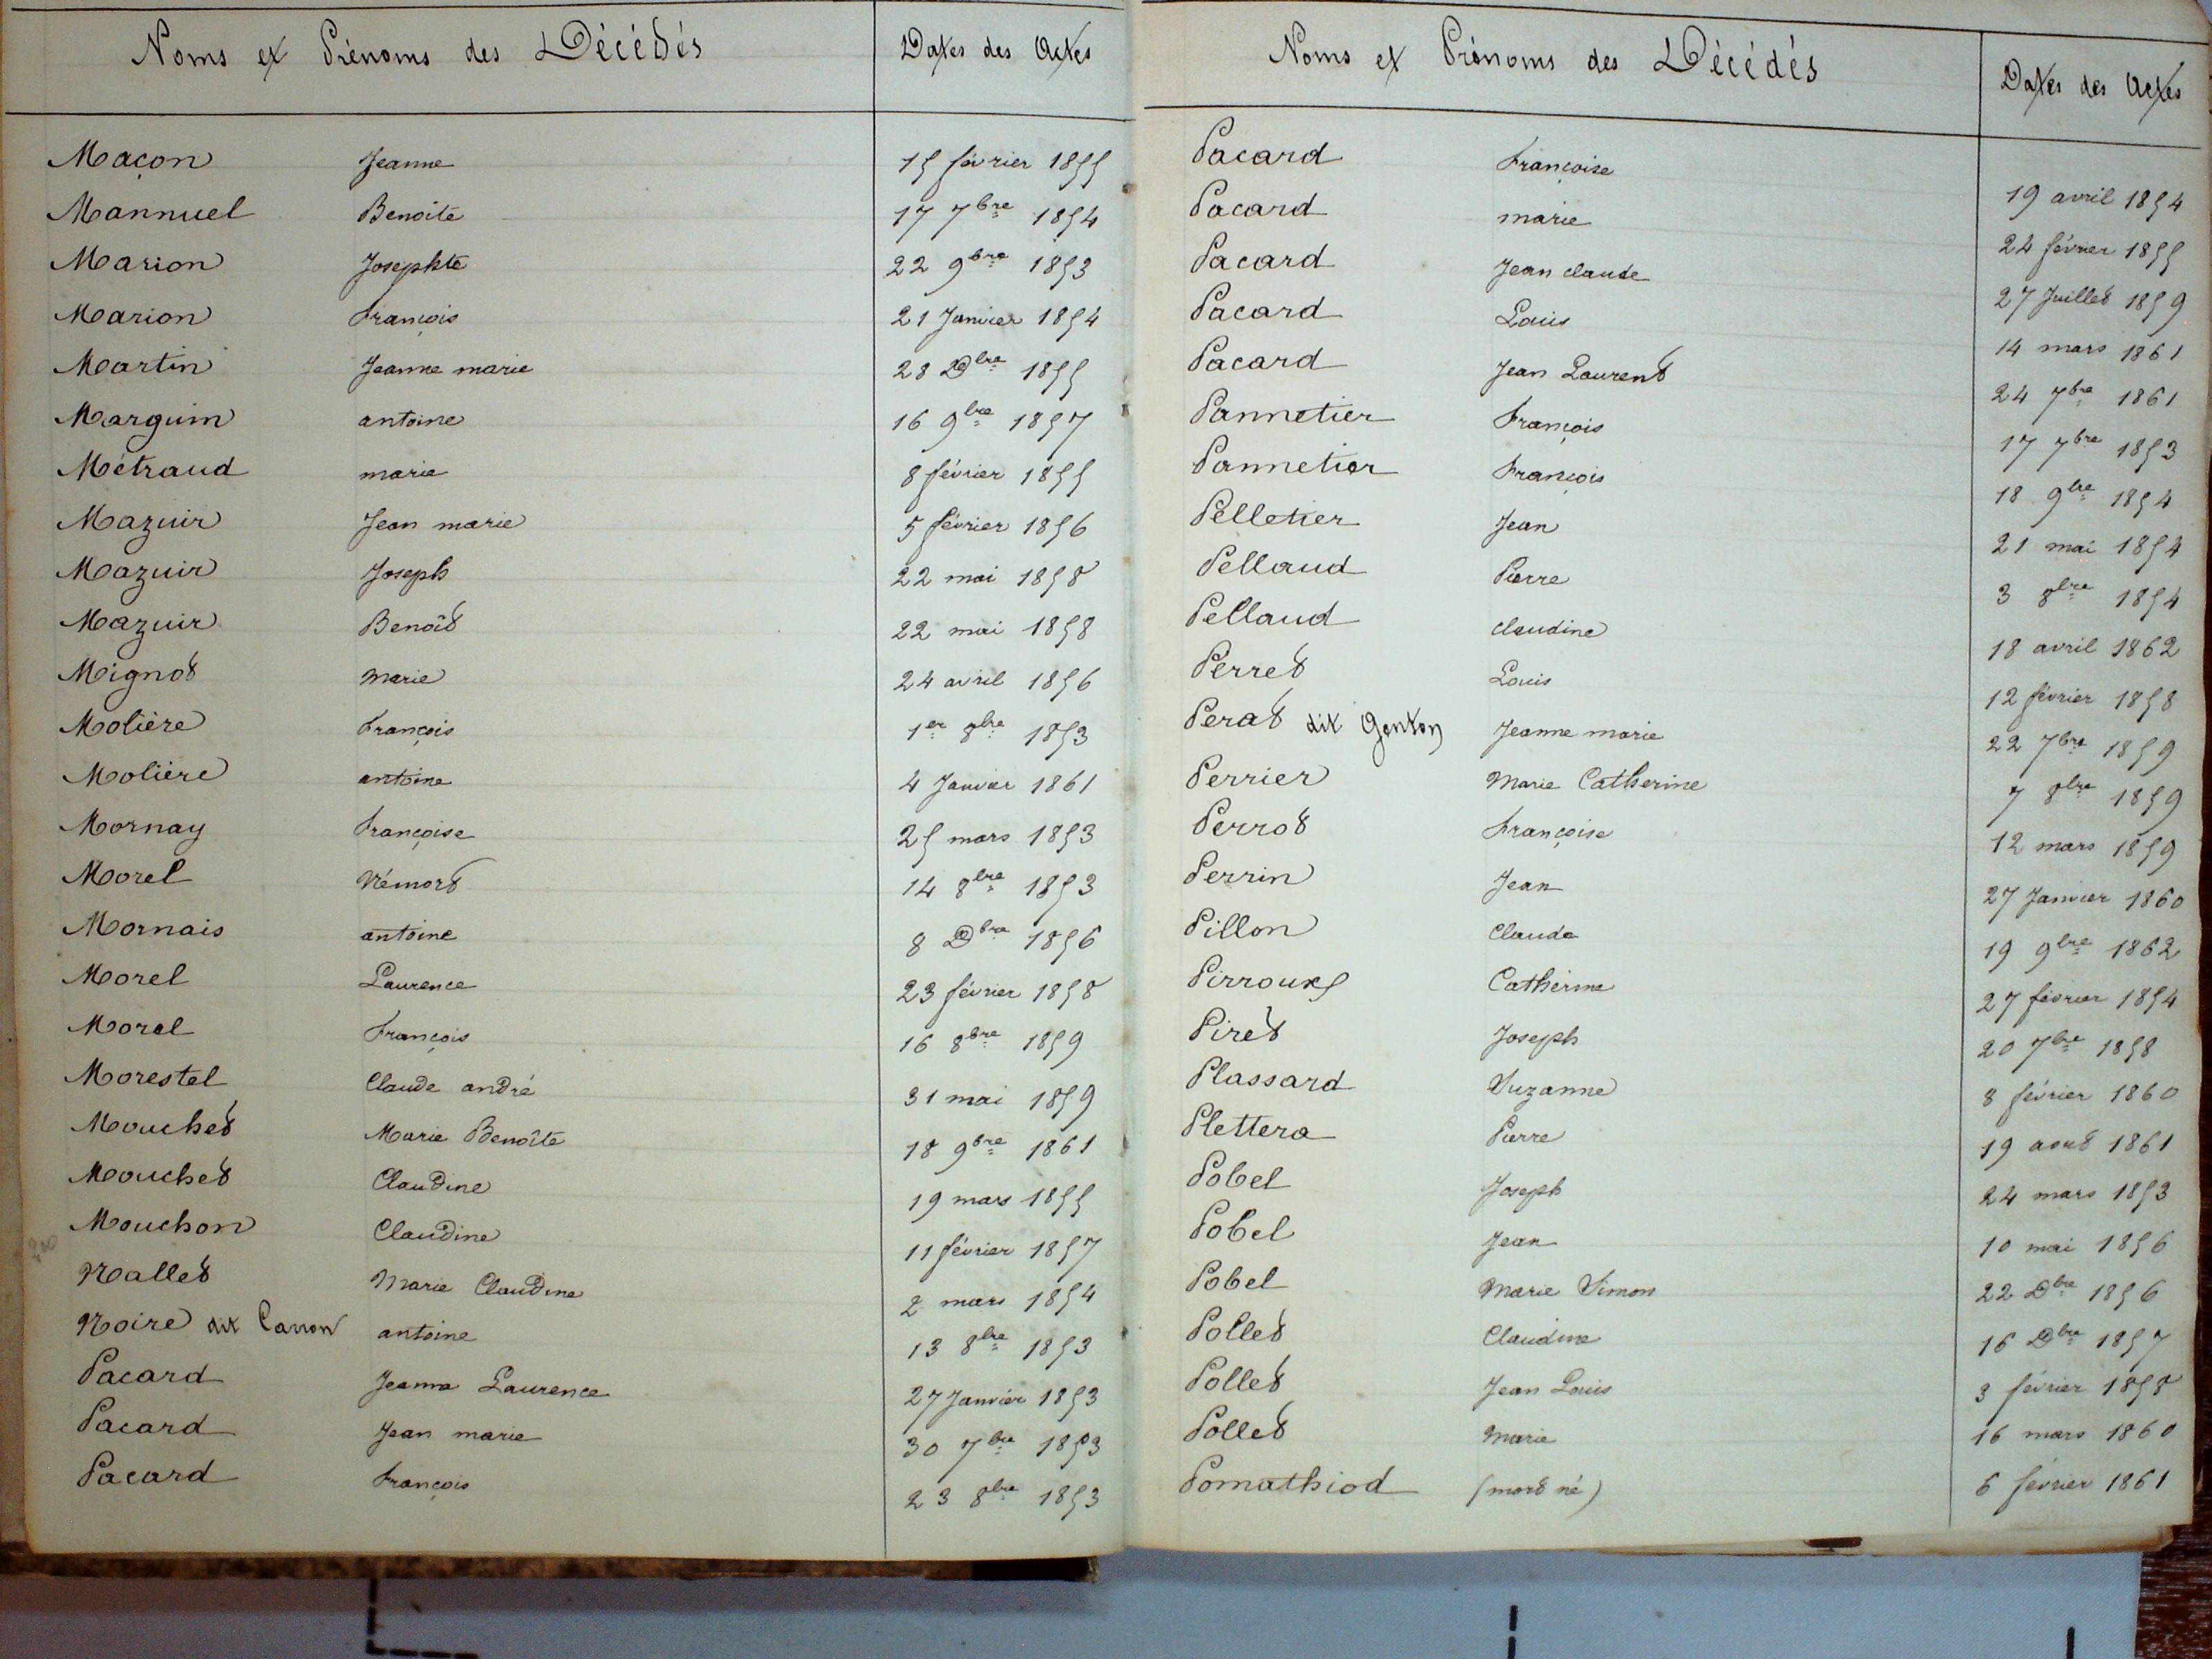 Noms et Prénoms des Décédés Dates des Actes
Maçon Jeanne 15 février 1855
Mannuel Benoîte 17 7bre 1854
Marion Josephte 22 9bre 1853
Marion François 21 Janvier 1854
Martin Jeanne marie 28 Dbre 1855
Marguin antoine 16 9bre 1857
Métraud marie 8 février 1855
Mazuir Jean marie 5 février 1856
Mazuir Joseph 22 mai 1858
Mazuir Benoît 22 mai 1858
Mignot Marie 24 avril 1856
Molière François 1er 8bre 1853
Molière antoine 4 Janvier 1861
Mornay Françoise 25 mars 1853
Morel Némort 14 8bre 1853
Mornais antoine 8 Dbre 1856
Morel Laurence 23 février 1858
Morel François 16 8bre 1859
Morestel Claude andré 31 mai 1859
Mouchet Marie Benoîte 18 9bre 1861
Mouchet Claudine 19 mars 1855
Mouchon Claudine 11 février 1857
Nallet Marie Claudine 2 mars 1854
Noire dit Canon antoine 13 8bre 1853
Pacard Jeanne Laurence 27 Janvier 1853
Pacard Jean marie 30 7bre 1853
Pacard François 23 8bre 1853
Noms et Prénoms des Décédés Dates des Actes
Pacard Françoise 19 avril 1854
Pacard marie 22 février 1855
Pacard Jean claude 27 Juillet 1859
Pacard Louis 14 mars 1861
Pacard Jean Laurent 24 7bre 1861
Pannetier François 17 7bre 1853
Pannetier François 18 9bre 1854
Pelletier Jean 21 mai 1854
Pellaud Pierre 3 8bre 1854
Pellaud claudine 18 avril 1862
Perret Louis 12 février 1858
Perat dit Genton Jeanne marie 22 7bre 1859
Perrier Marie Catherine 7 8bre 1859
Perrot Françoise 12 mars 1859
Perrin Jean 27 Janvier 1860
Pillon Claude 19 9bre 1862
Pirroux Catherine 27 février 1854
Piret Joseph 20 7bre 1858
Plassard Suzanne 8 février 1860
Plettera Pierre 19 aout 1861
Pobel Joseph 24 mars 1853
Pobel Jean 10 mai 1856
Pobel Marie Simon 22 Dbre 1856
Pollet Claudine 16 Dbre 1857
Pollet Jean Louis 3 février 1858
Pollet Marie 16 mars 1860
Pomathiod (mort né) 6 février 1861